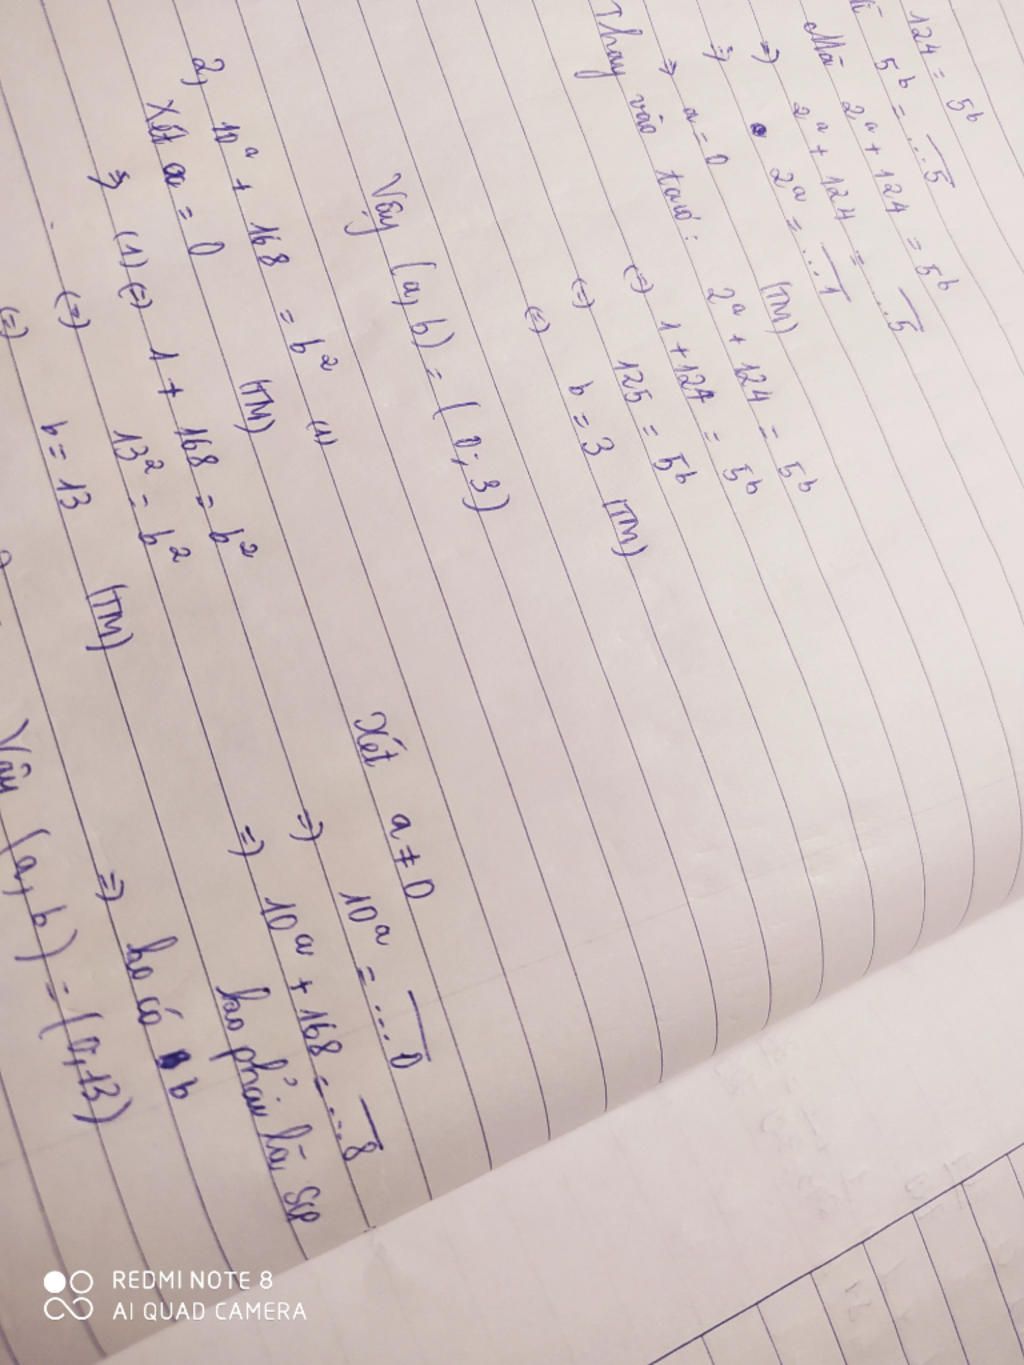 124 = 5ᵇ
5ᵇ = ...5
Mà 2ᵃ + 124 = 5ᵇ
=> 2ᵃ + 124 = ...5
=> 2ᵃ = ...1
=> a = 0 (TM)
Thay vào ta có: 2ᵃ + 124 = 5ᵇ
(=) 1 + 124 = 5ᵇ
(=) 125 = 5ᵇ
(=) b = 3 (TM)
Vậy (a, b) = (0; 3)
2, 10ᵃ + 168 = b² (1)
Xét a = 0 (TM)
=> (1) (=) 1 + 168 = b²
(=) 13² = b²
(=) b = 13 (TM)
Xét a ≠ 0
=> 10ᵃ = ...0
=> 10ᵃ + 168 = ...8
ko phải là SCP
=> ko có b
Vậy (a, b) = (0; 13)
REDMI NOTE 8
AI QUAD CAMERA